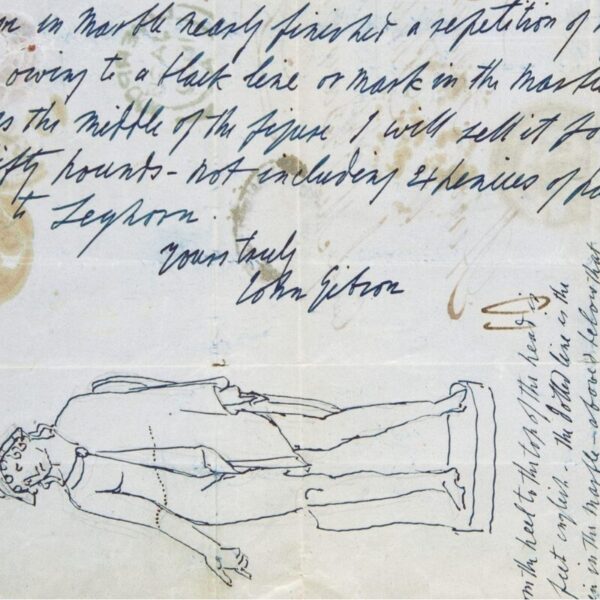 in marble nearly finished a repetition of
owing to a black line or mark in the marble
the middle of the figure I will sell it for
fifty pounds - not including expences of
to Leghorn.
yours truly
John Gibson
heel to the top of the head is
feet english. the dotted line is the
in the marble - above & below that